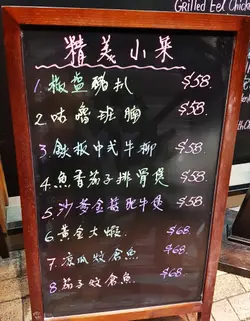 Grilled Eel Chicke
精美小菜
1. 椒盐豬扒 $58.
2. 咕嚕班腩 $58.
3. 鉄板中式牛柳 $58.
4. 魚香茄子排骨煲 $58.
5. 沙 黃金 牛煲 $58.
6. 黃金大蝦. $68.
7. 凉瓜炆倉魚 $68.
8. 茄子炆倉魚. $68.